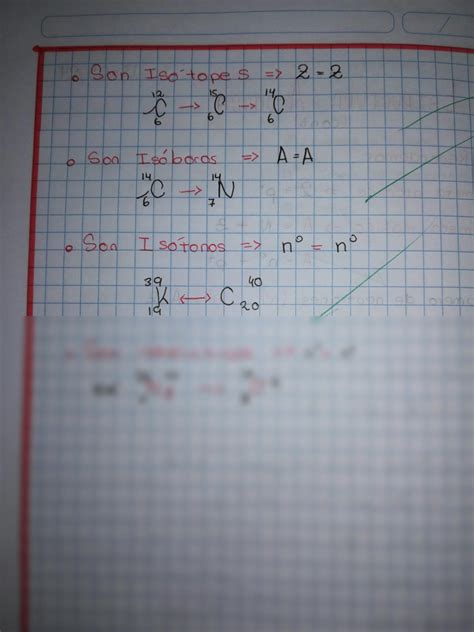 • Son Isótopes => 2 = 2
¹²₆C → ¹⁵₆C → ¹⁴₆C
• Son Isóbaros => A = A
¹⁴₆C → ¹⁴₇N
• Son Isótonos => n° = n°
³⁹₁₉K ↔ C⁴⁰₂₀